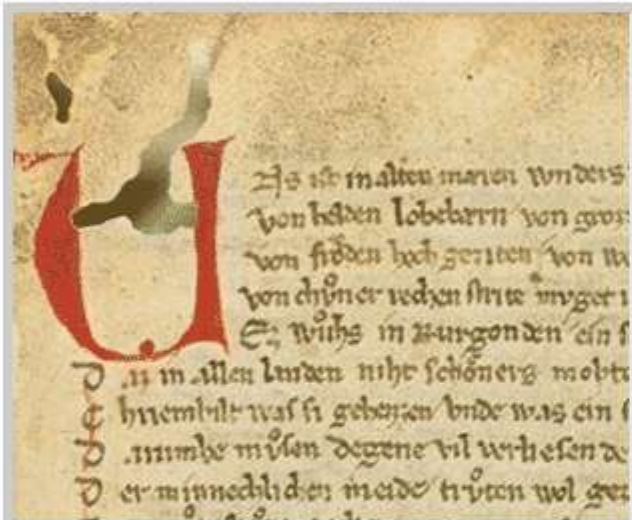 UNs ist in alten maren wnders
von helden lobebærn von groz
von frőden hochgeziten von we
von chůner rechen strite muget i
Ez wůhs in Burgonden ein s
daz in allen landen niht schőners mohte
Chriemhilt was si geheizen vnde was ein s
darumbe můsen degene vil verliesen de
der minneclichen meide trůten wol gez